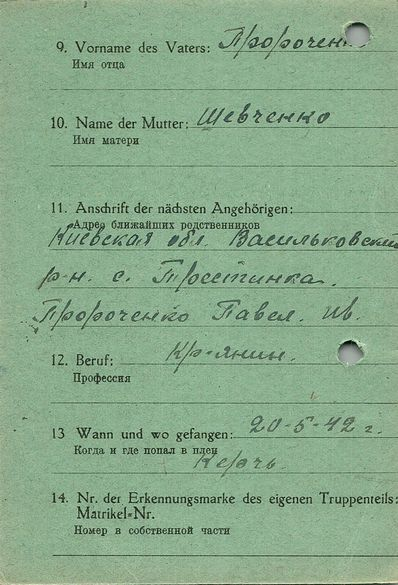 9. Vorname des Vaters: Пророченко
Имя отца
10. Name der Mutter: Шевченко
Имя матери
11. Anschrift der nächsten Angehörigen:
Адрес ближайших родственников
Киевская обл. Васильковский
р-н. с.
Пророченко Павел. Ив.
12. Beruf: Кр-янин.
Профессия
13 Wann und wo gefangen: 20-5-42 г.
Когда и где попал в плен Керчь.
14. Nr. der Erkennungsmarke des eigenen Truppenteils:
Matrikel=Nr.
Номер в собственной части